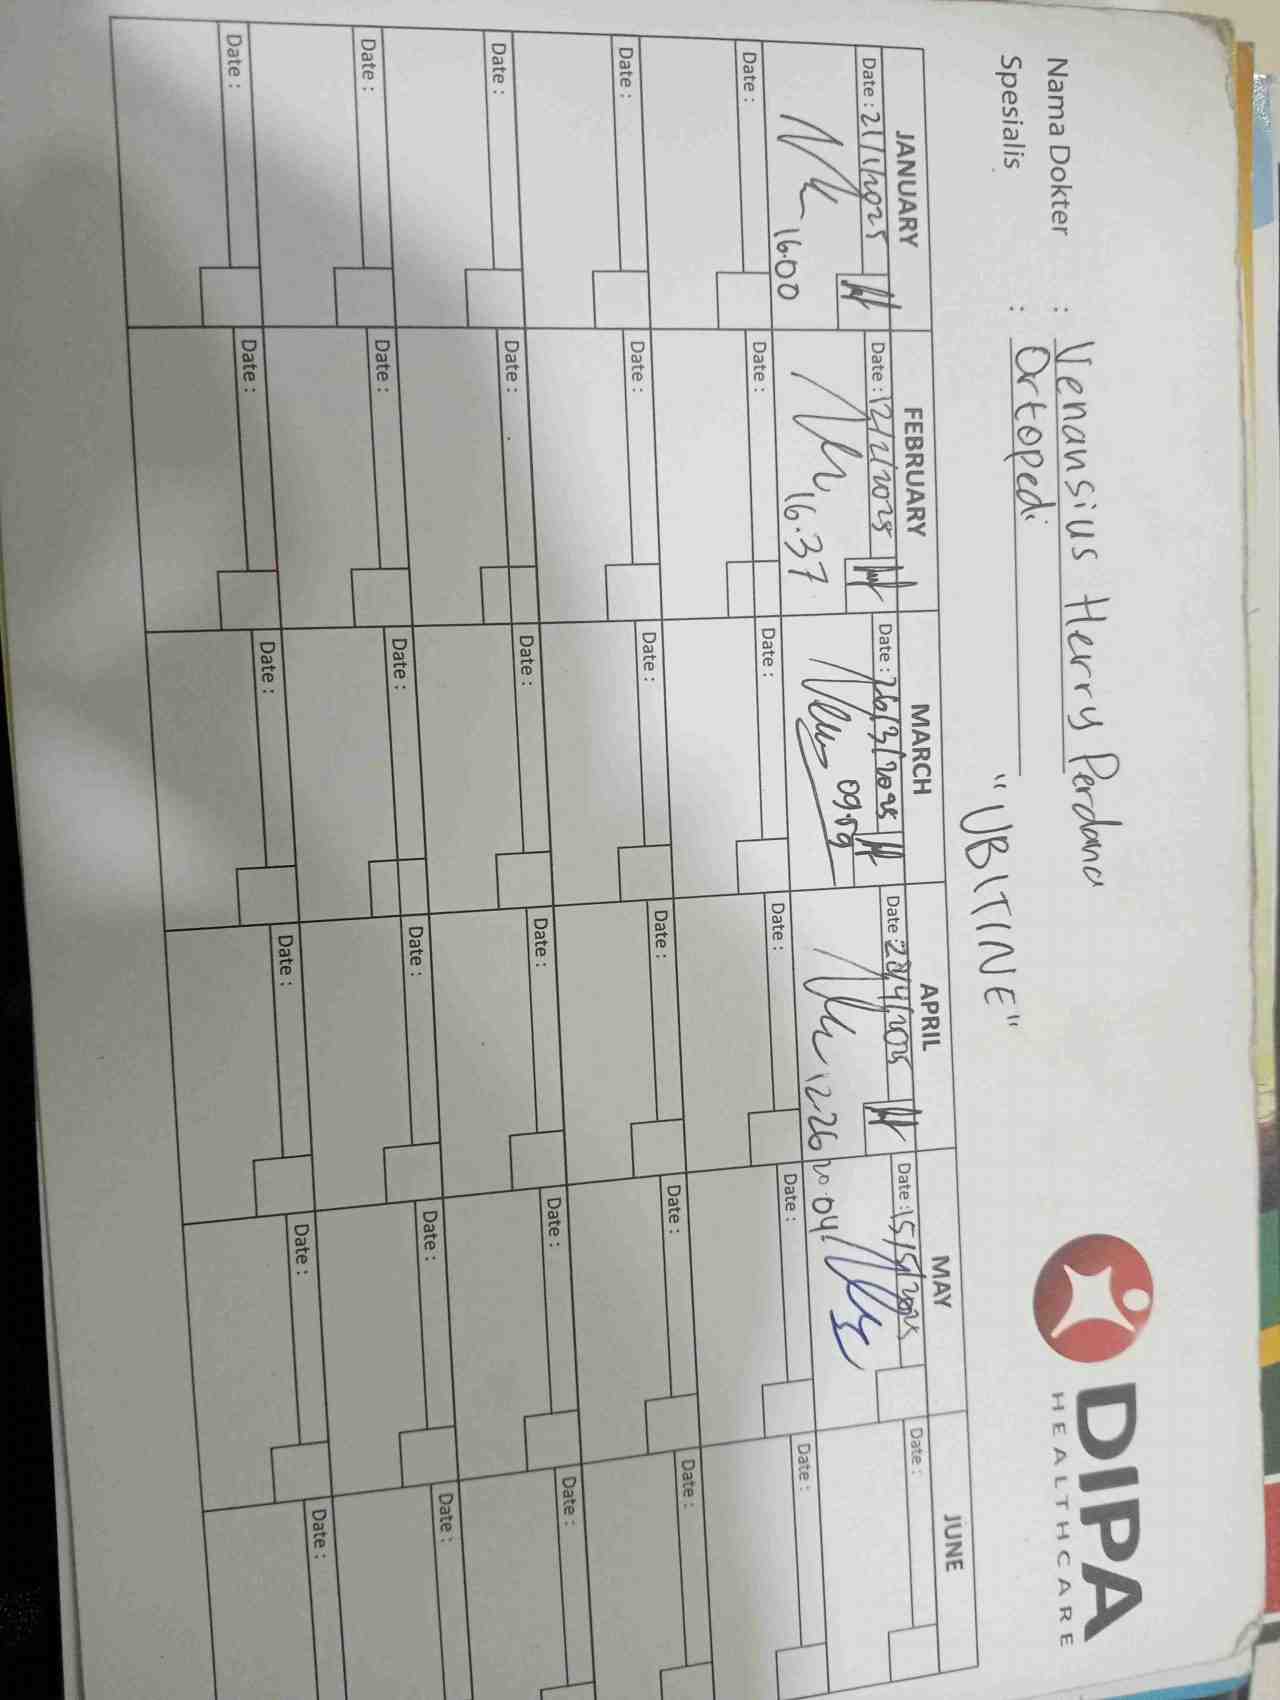 DIPA
HEALTHCARE
Nama Dokter : Venansius Herry Perdana
Spesialis : Ortopedi
"UBITINE"
JANUARY FEBRUARY MARCH APRIL MAY JUNE
Date : 21/1/2025 Date : 12/2/2025 Date : 26/3/2025 Date 22/4/2025 Date : 15/5/2025 Date :
16.00 16.37 09.59 12.26 20.04
Date : Date : Date : Date : Date : Date :
Date : Date : Date : Date : Date : Date :
Date : Date : Date : Date : Date : Date :
Date : Date : Date : Date : Date : Date :
Date : Date : Date : Date : Date : Date :